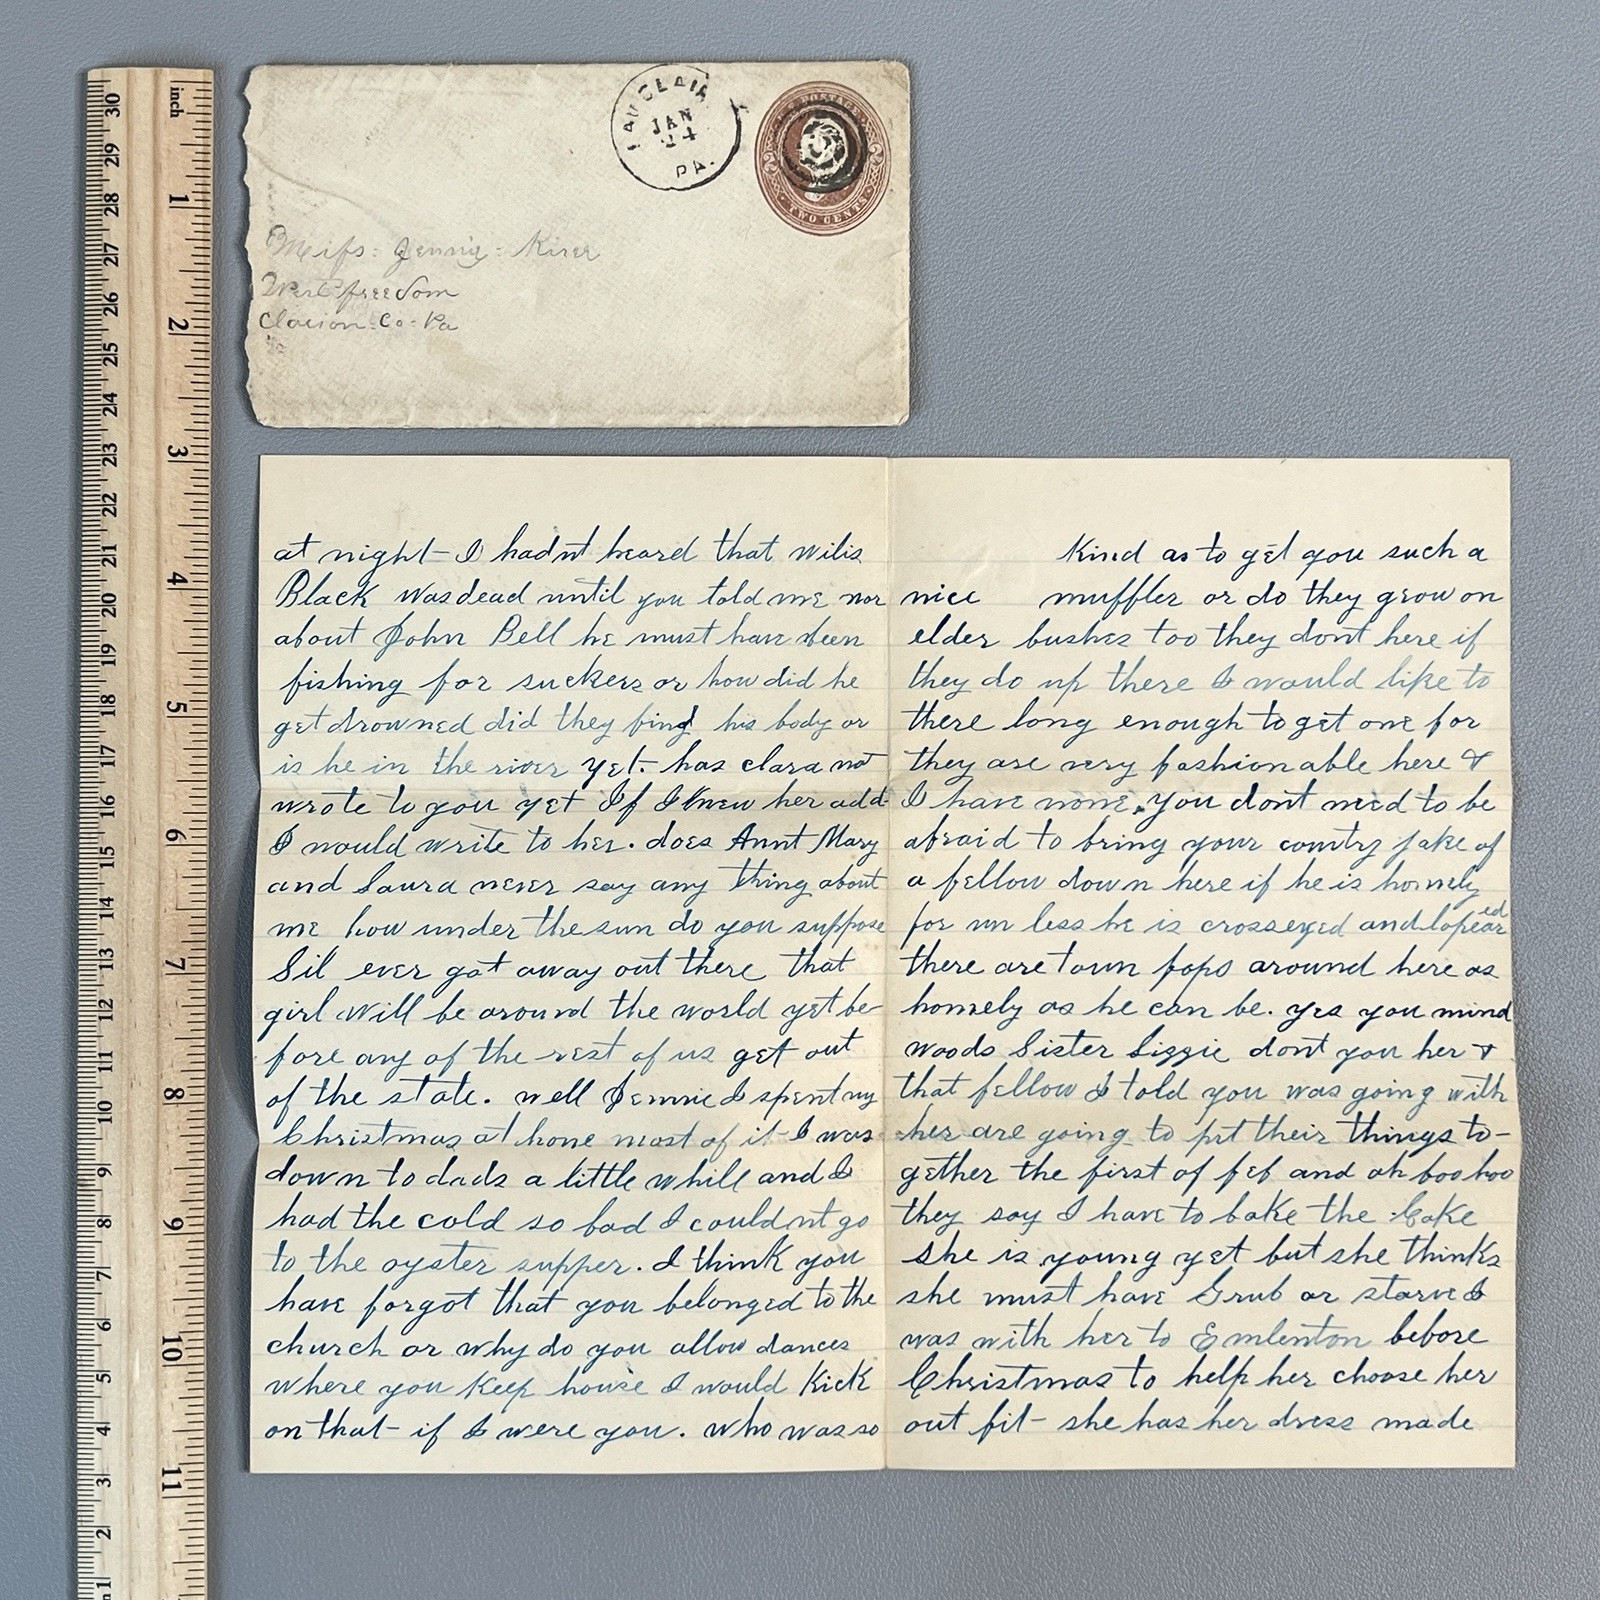 EAU CLAIR
JAN
24
PA.
U.S. POSTAGE
TWO CENTS
Miss = Jennie = Kiser
West freedom
Clarion = Co = Pa
at night- I hadnt heard that wilis
Black was dead until you told me nor
about John Bell he must have been
fishing for suckers or how did he
get drowned did they find his body or
is he in the river yet. has clara not
wrote to you yet If I knew her add-
I would write to her. does Aunt Mary
and Laura never say any thing about
me how under the sun do you suppose
Sil ever got away out there that
girl will be around the world yet be-
fore any of the rest of us get out
of the state. well Jennie I spent my
Christmas at home most of it- I was
down to dads a little while and I
had the cold so bad I couldnt go
to the oyster supper. I think you
have forgot that you belonged to the
church or why do you allow dances
where you Keep house I would Kick
on that- if I were you. who was so
Kind as to get you such a
nice muffler or do they grow on
elder bushes too they dont here if
they do up there I would like to
there long enough to get one for
they are very fashionable here &
I have none. you dont need to be
afraid to bring your country jake of
a fellow down here if he is homely
for un less he is crosseyed and lopeared
there are town fops around here as
homely as he can be. yes you mind
woods Sister Lizzie dont you her &
that fellow I told you was going with
her are going to put their things to-
gether the first of feb and oh boo hoo
they say I have to bake the Cake
she is young yet but she thinks
she must have Grub or starve I
was with her to Emlenton before
Christmas to help her choose her
out fit- she has her dress made
inch
1
2
3
4
5
6
7
8
9
10
11
30
29
28
27
26
25
24
23
22
21
20
19
18
17
16
15
14
13
12
11
10
9
8
7
6
5
4
3
2
1